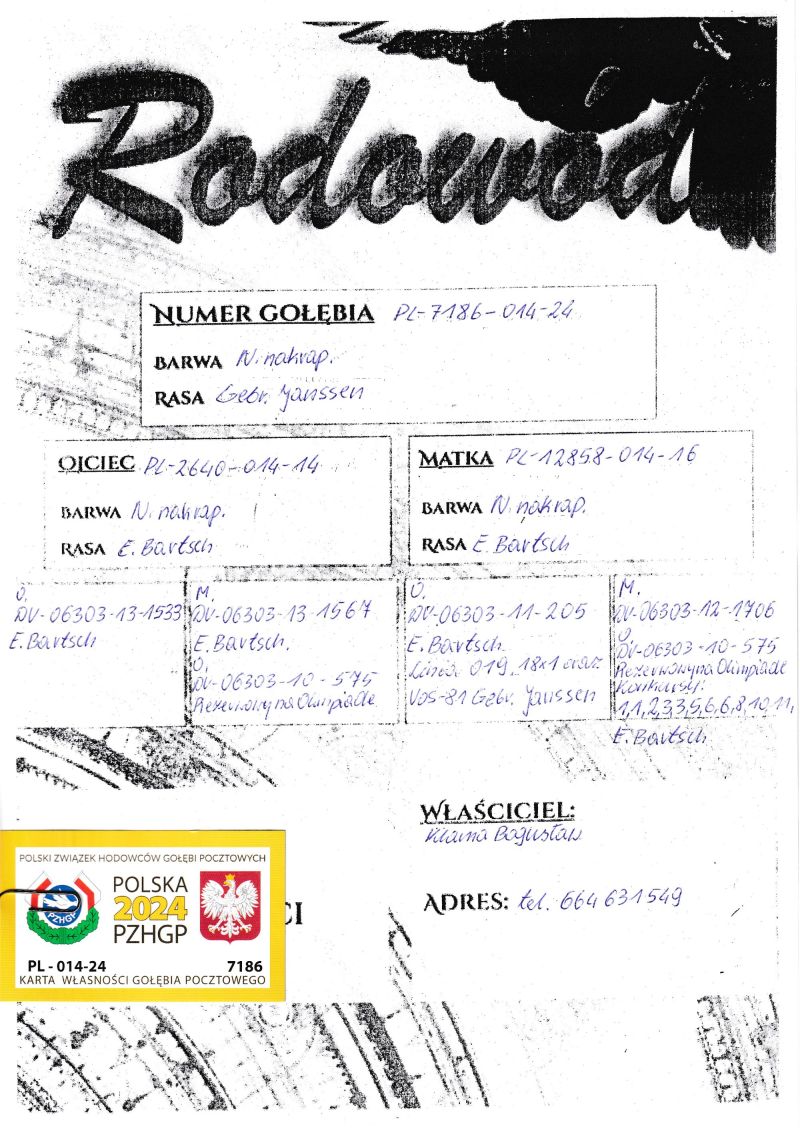 Rodowód
NUMER GOŁĘBIA PL-7186-014-24
BARWA N. nakrap.
RASA Gebr. Janssen
OJCIEC PL-2640-014-14
BARWA N. nakrap.
RASA E. Bartsch
MATKA PL-12858-014-16
BARWA N. nakrap.
RASA E. Bartsch
O.
DV-06303-13-1533
E. Bartsch
M.
DV-06303-13-1567
E. Bartsch.
O.
DV-06303-10-575
Rezerwowy na Olimpiadę
O.
DV-06303-11-205
E. Bartsch
Linia 019, 18x1 oraz
VDS-81 Gebr. Janssen
M.
DV-06303-12-1706
O.
DV-06303-10-575
Rezerwowy na Olimpiadę
Konkursy:
1,1,2,3,3,5,6,6,8,10,11,
E. Bartsch
WŁAŚCICIEL:
Klama Bogusław
ADRES: tel. 664 631549
CI
POLSKI ZWIĄZEK HODOWCÓW GOŁĘBI POCZTOWYCH
PZHGP
POLSKA
2024
PZHGP
PL - 014-24 7186
KARTA WŁASNOŚCI GOŁĘBIA POCZTOWEGO